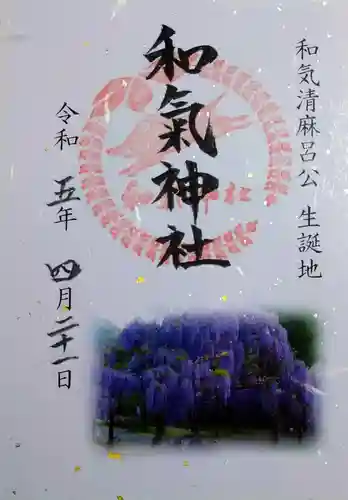 和気清麻呂公 生誕地
和氣神社
令和五年四月二十一日